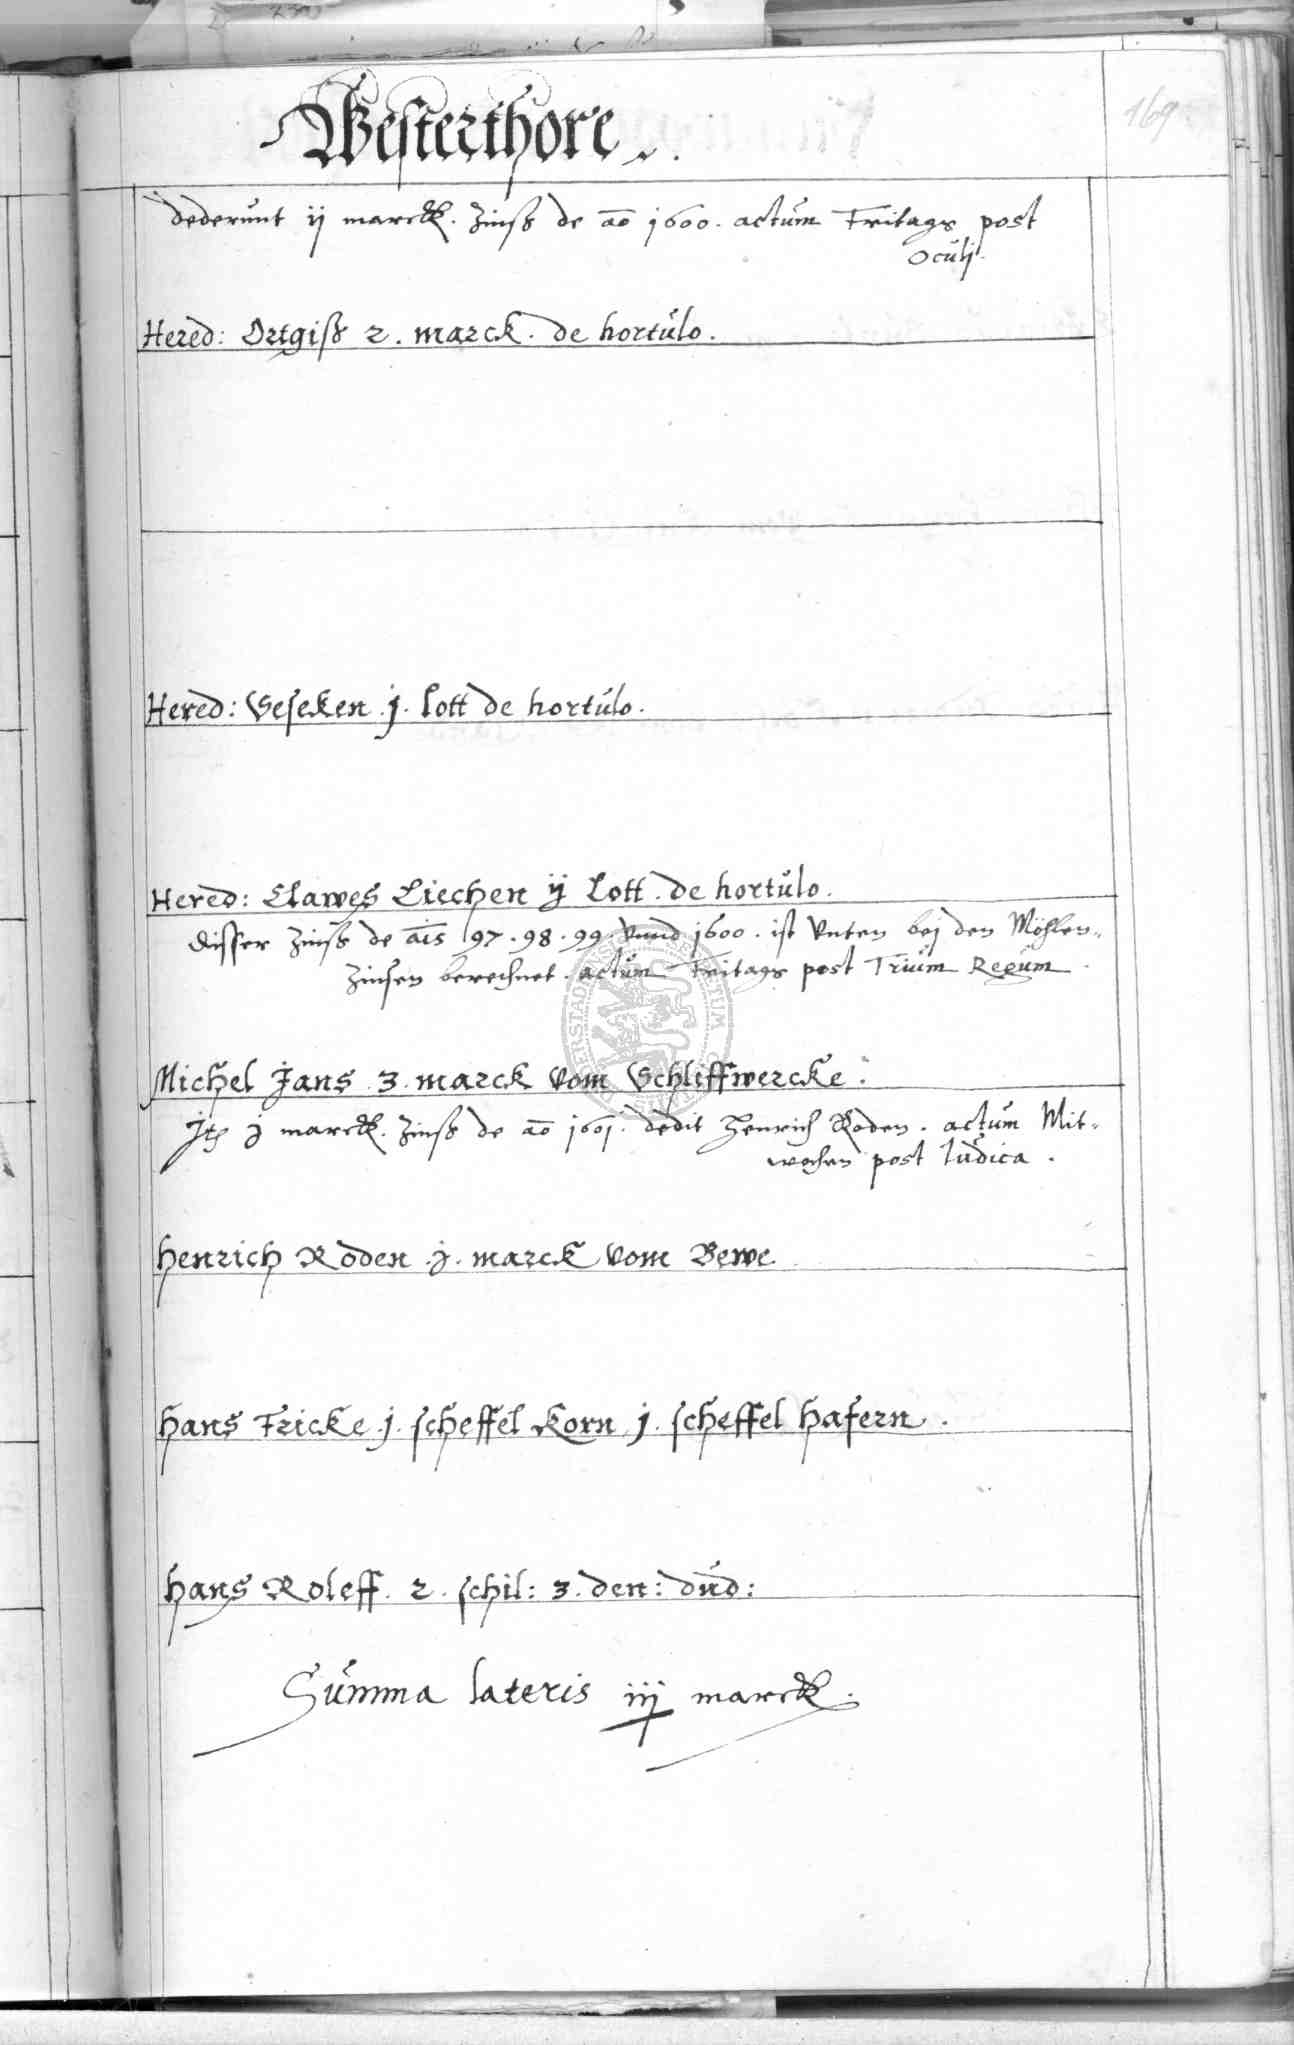 169
Westerthore
dederunt ij marck. Zinß de ao 1600. actum Fritags post
Oculj.
Hered: Ortgiß 2. marck. de hortulo.
Hered: Veseken .j. lott de hortulo.
Hered: Clawes Ciechen ij Lott. de hortulo.
disser Zinß de ais 97. 98. 99. vnnd 1600. ist vnten bej den Möhlen-
Zinsen berechnet. actum Fritags post Trium Regum
Michel Jans 3. marck vom Schliffwercke.
j marck. Zinß de ao 1601. dedit Henrich Roden. actum Mit-
wochen post Judica.
Henrich Roden .j. marck vom Bewe
Hans Fricke .j. scheffel Korn j. scheffel Hafern.
Hans Roleff. 2. schil: 3. den: dud:
Summa lateris iij marck.